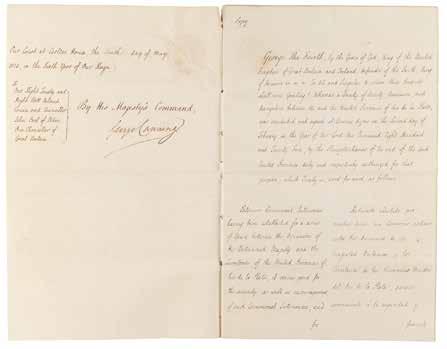 Our Court at Carlton House, the Tenth day of May
1825, in the Sixth Year of Our Reign.
To
Our Right Trusty and
Right Well Beloved
Cousin and Councillor
John Earl of Eldon
Our Chancellor of
Great Britain
By His Majesty's Command,
George Canning
Copy
George the Fourth, by the Grace of God, King of the United
Kingdom of Great Britain and Ireland, Defender of the Faith, King
of Hanover &c &c &c To all and Singular to whom these Presents
shall come, Greeting! Whereas a Treaty of Amity, Commerce, and
Navigation between Us and the United Provinces of Rio de la Plata,
was concluded and signed at Buenos Ayres on the Second day of
February in the Year of Our Lord One Thousand Eight Hundred
and Twenty Five, by the Plenipotentiaries of Us and of the said
United Provinces, duly and respectively authorized for that
purpose, which Treaty is, word for word, as follows.
Extensive Commercial Intercourse
having been established for a series
of Years between the Dominions of
His Britannick Majesty and the
Territories of the United Provinces of
Rio de la Plata, it seems good for
the security as well as encouragement
of such Commercial Intercourse, and
for
Habiendo existido por
muchos años un comercio
entre los dominios de
Magestad Britanica y los
territorios de las Provincias Unidas
del Rio de la Plata,